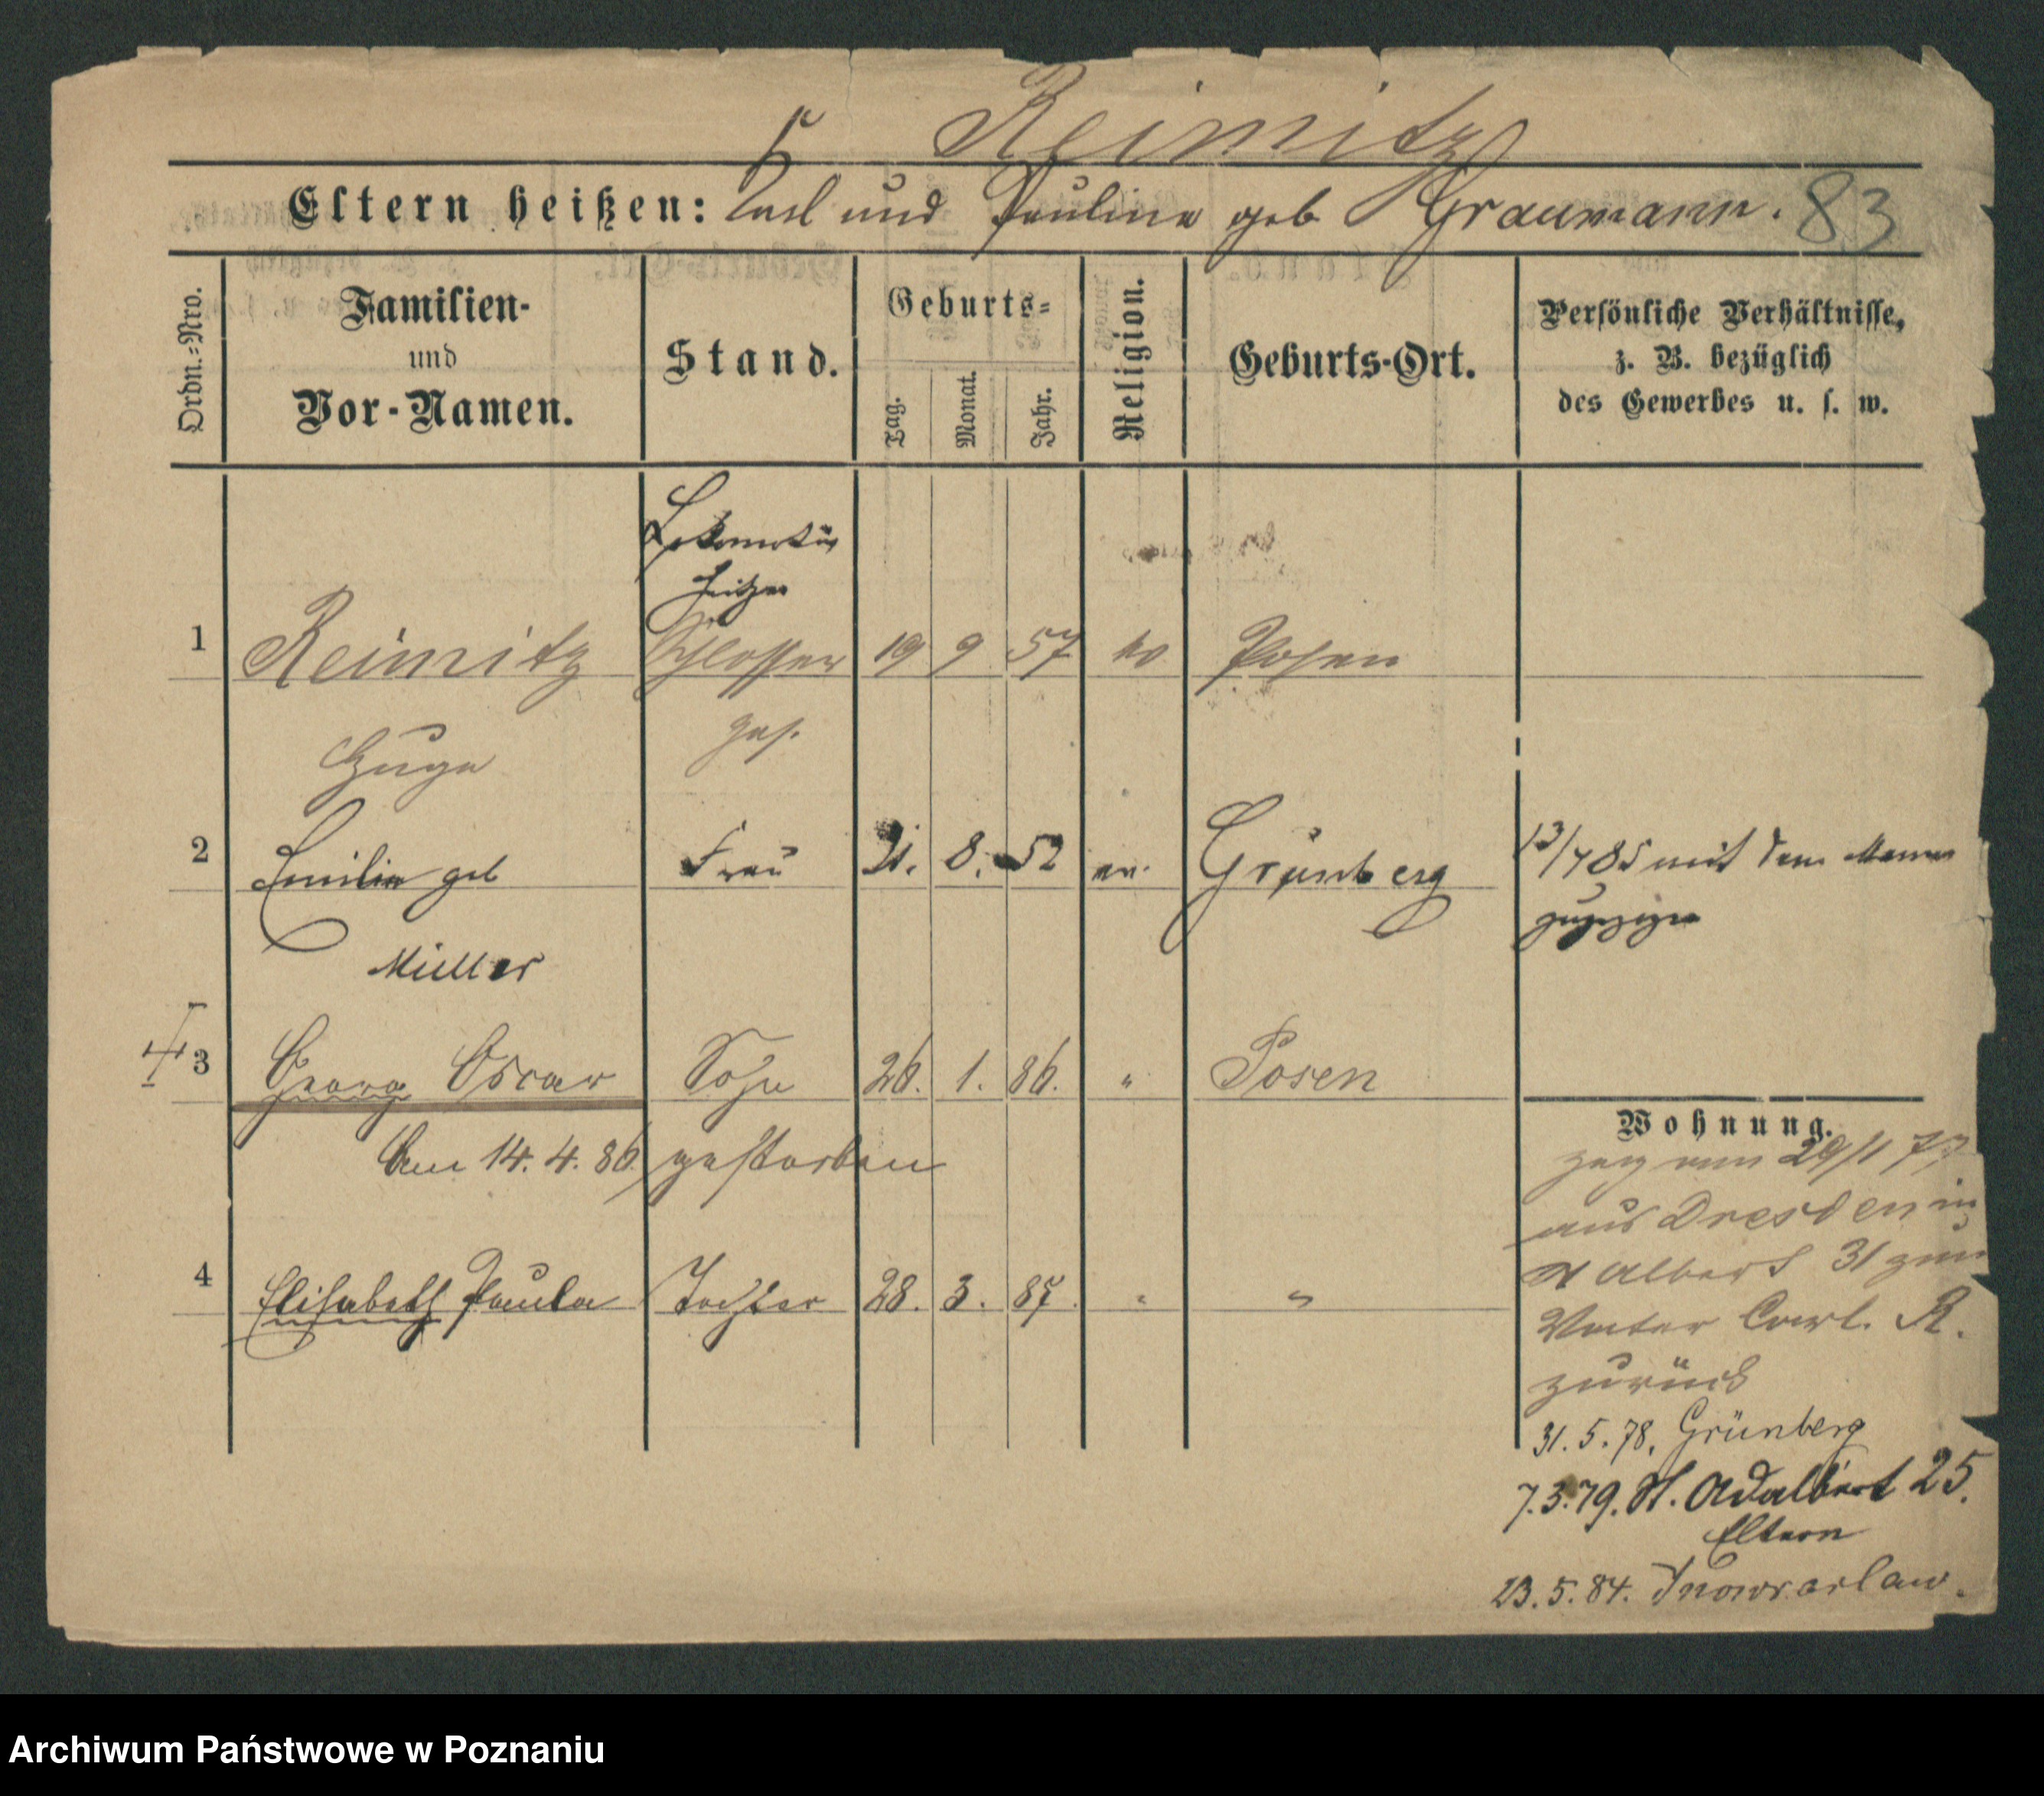 Reimitz
Eltern heißen: Carl und Pauline geb Graumann. 83
Ordn.-Nro.
Familien-
und
Vor-Namen.
Stand.
Geburts-
Tag.
Monat.
Jahr.
Religion.
Geburts-Ort.
Persönliche Verhältnisse,
z. B. bezüglich
des Gewerbes u. s. w.
Lokomotiv
heizer
1 Reimitz Schlosser 19 9 57 ev Posen
Hugo ges.
2 Emilie geb Frau 21. 8. 52 ev. Grünberg 13/7 85 mit dem Manne
Müller zugezogen
3 Georg Oscar Sohn 26. 1. 86. " Posen
Am 14. 4. 86 gestorben
4 Elisabeth Paula Tochter 28. 3. 87. " "
Wohnung.
zog am 29/1
aus Dresden in
St Albert 31 zum
Vater Carl. R.
zurück
31. 5. 78. Grünberg
7.3.79. St. Adalbert 25.
Eltern
23. 5. 84. Inowraclaw.
Archiwum Państwowe w Poznaniu